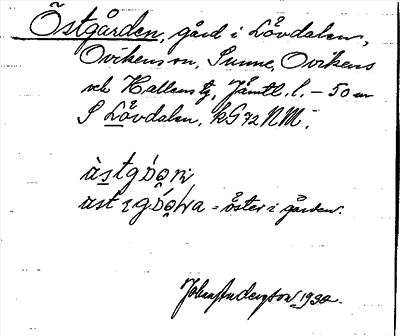 Östgården, gård i Lövdalen,
Ovikens sn, Sunne, Ovikens
och Hallens tg, Jämtl. l. – 50 m
S Lövdalen, kG 72 NM.
àstgɷ̀ɷṇ
àst ɩ gɷ̀ɷṇa = öster i gården.
Johan Andersson 1932.